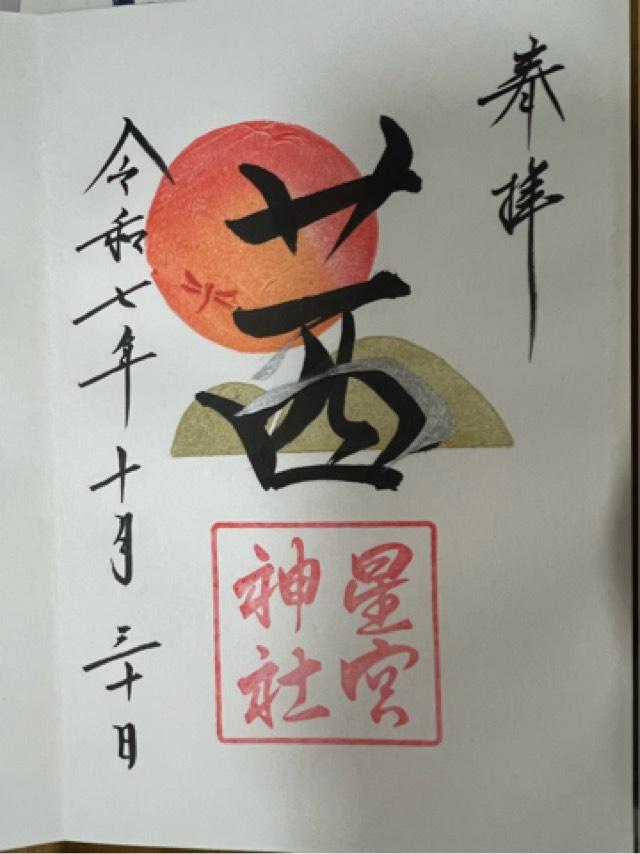 奉拝
茜
星宮
神社
令和七年十月三十日